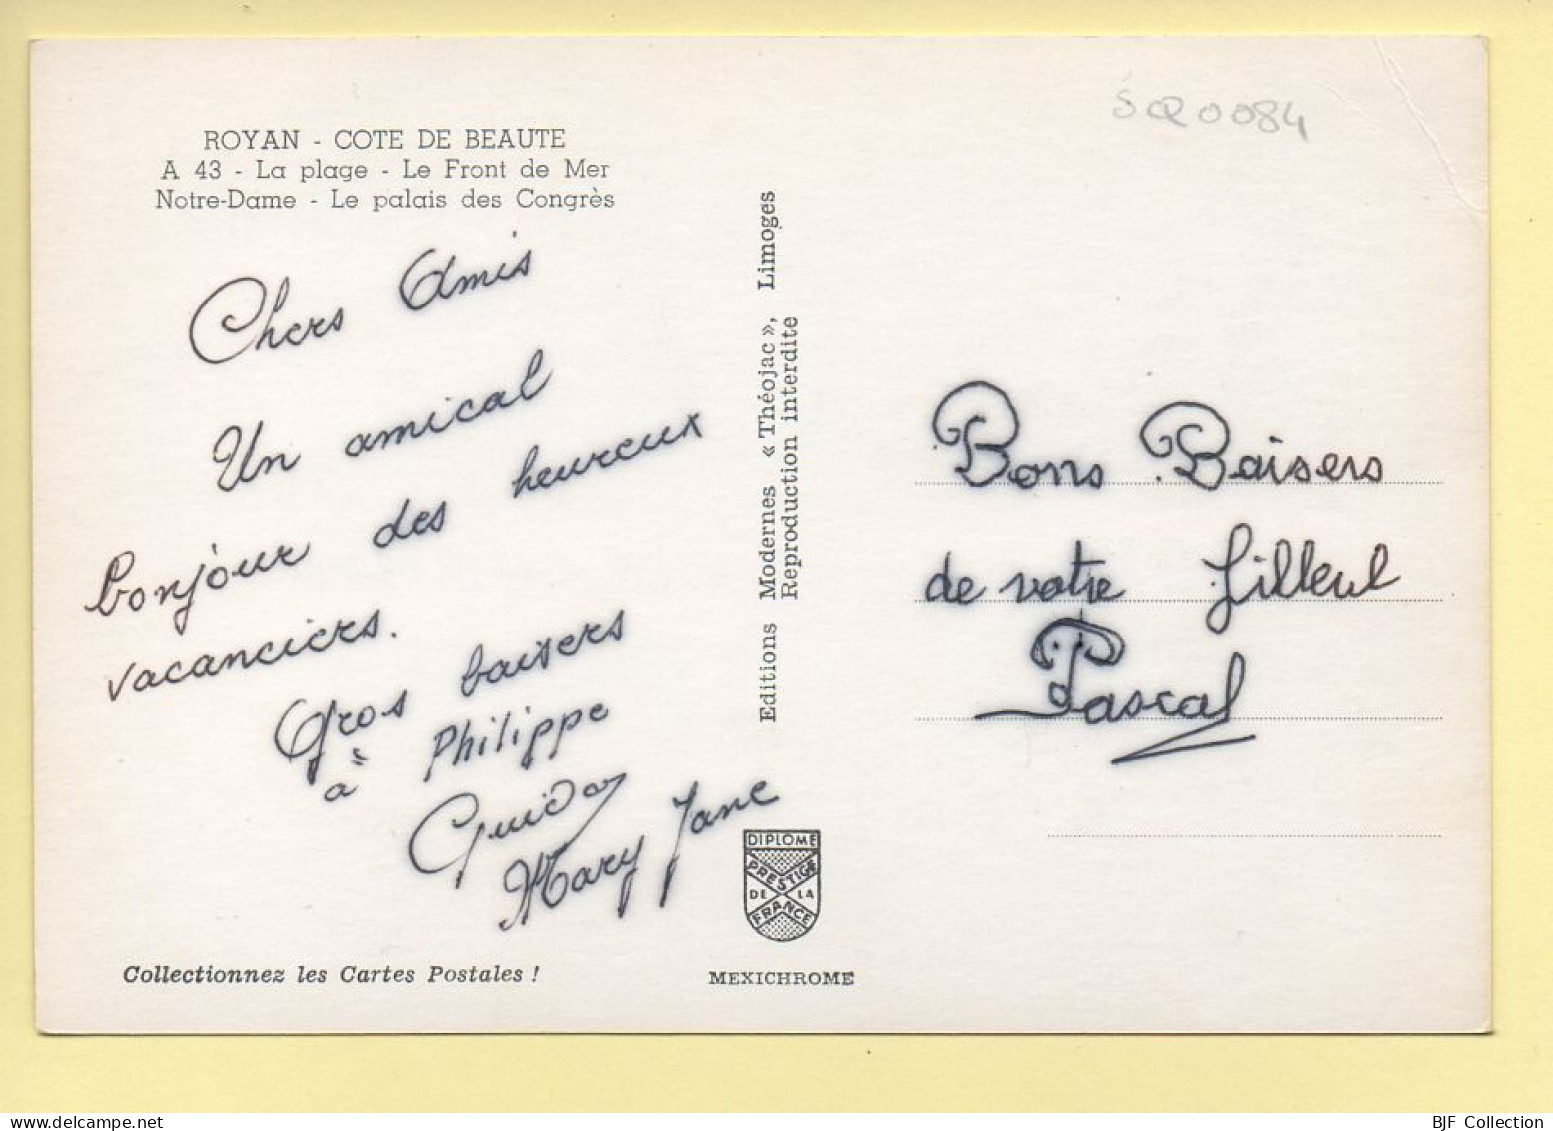 SQ0084
ROYAN - COTE DE BEAUTE
A 43 - La plage - Le Front de Mer
Notre-Dame - Le palais des Congrès
Chers Amis
Un amical
bonjour des heureux
vacanciers.
Gros baisers
à Philippe
Guidoz
Mary Jane
Collectionnez les Cartes Postales !
Editions Modernes « Théojac », Limoges
Reproduction interdite
DIPLOME
PRESTIGE
DE LA
FRANCE
MEXICHROME
Bons Baisers
de votre filleul
Pascal
BJF Collection
www.delcampe.net